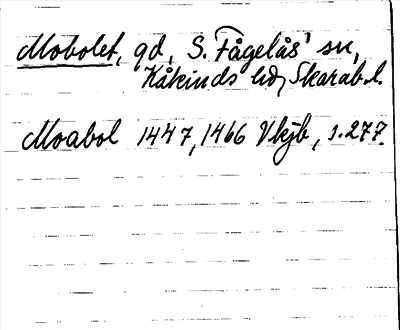 Mobolet, gd, S. Fågelås' sn,
Kåkinds hd, Skarab. l.
Moabol 1447, 1466 Vkjb, s. 277.